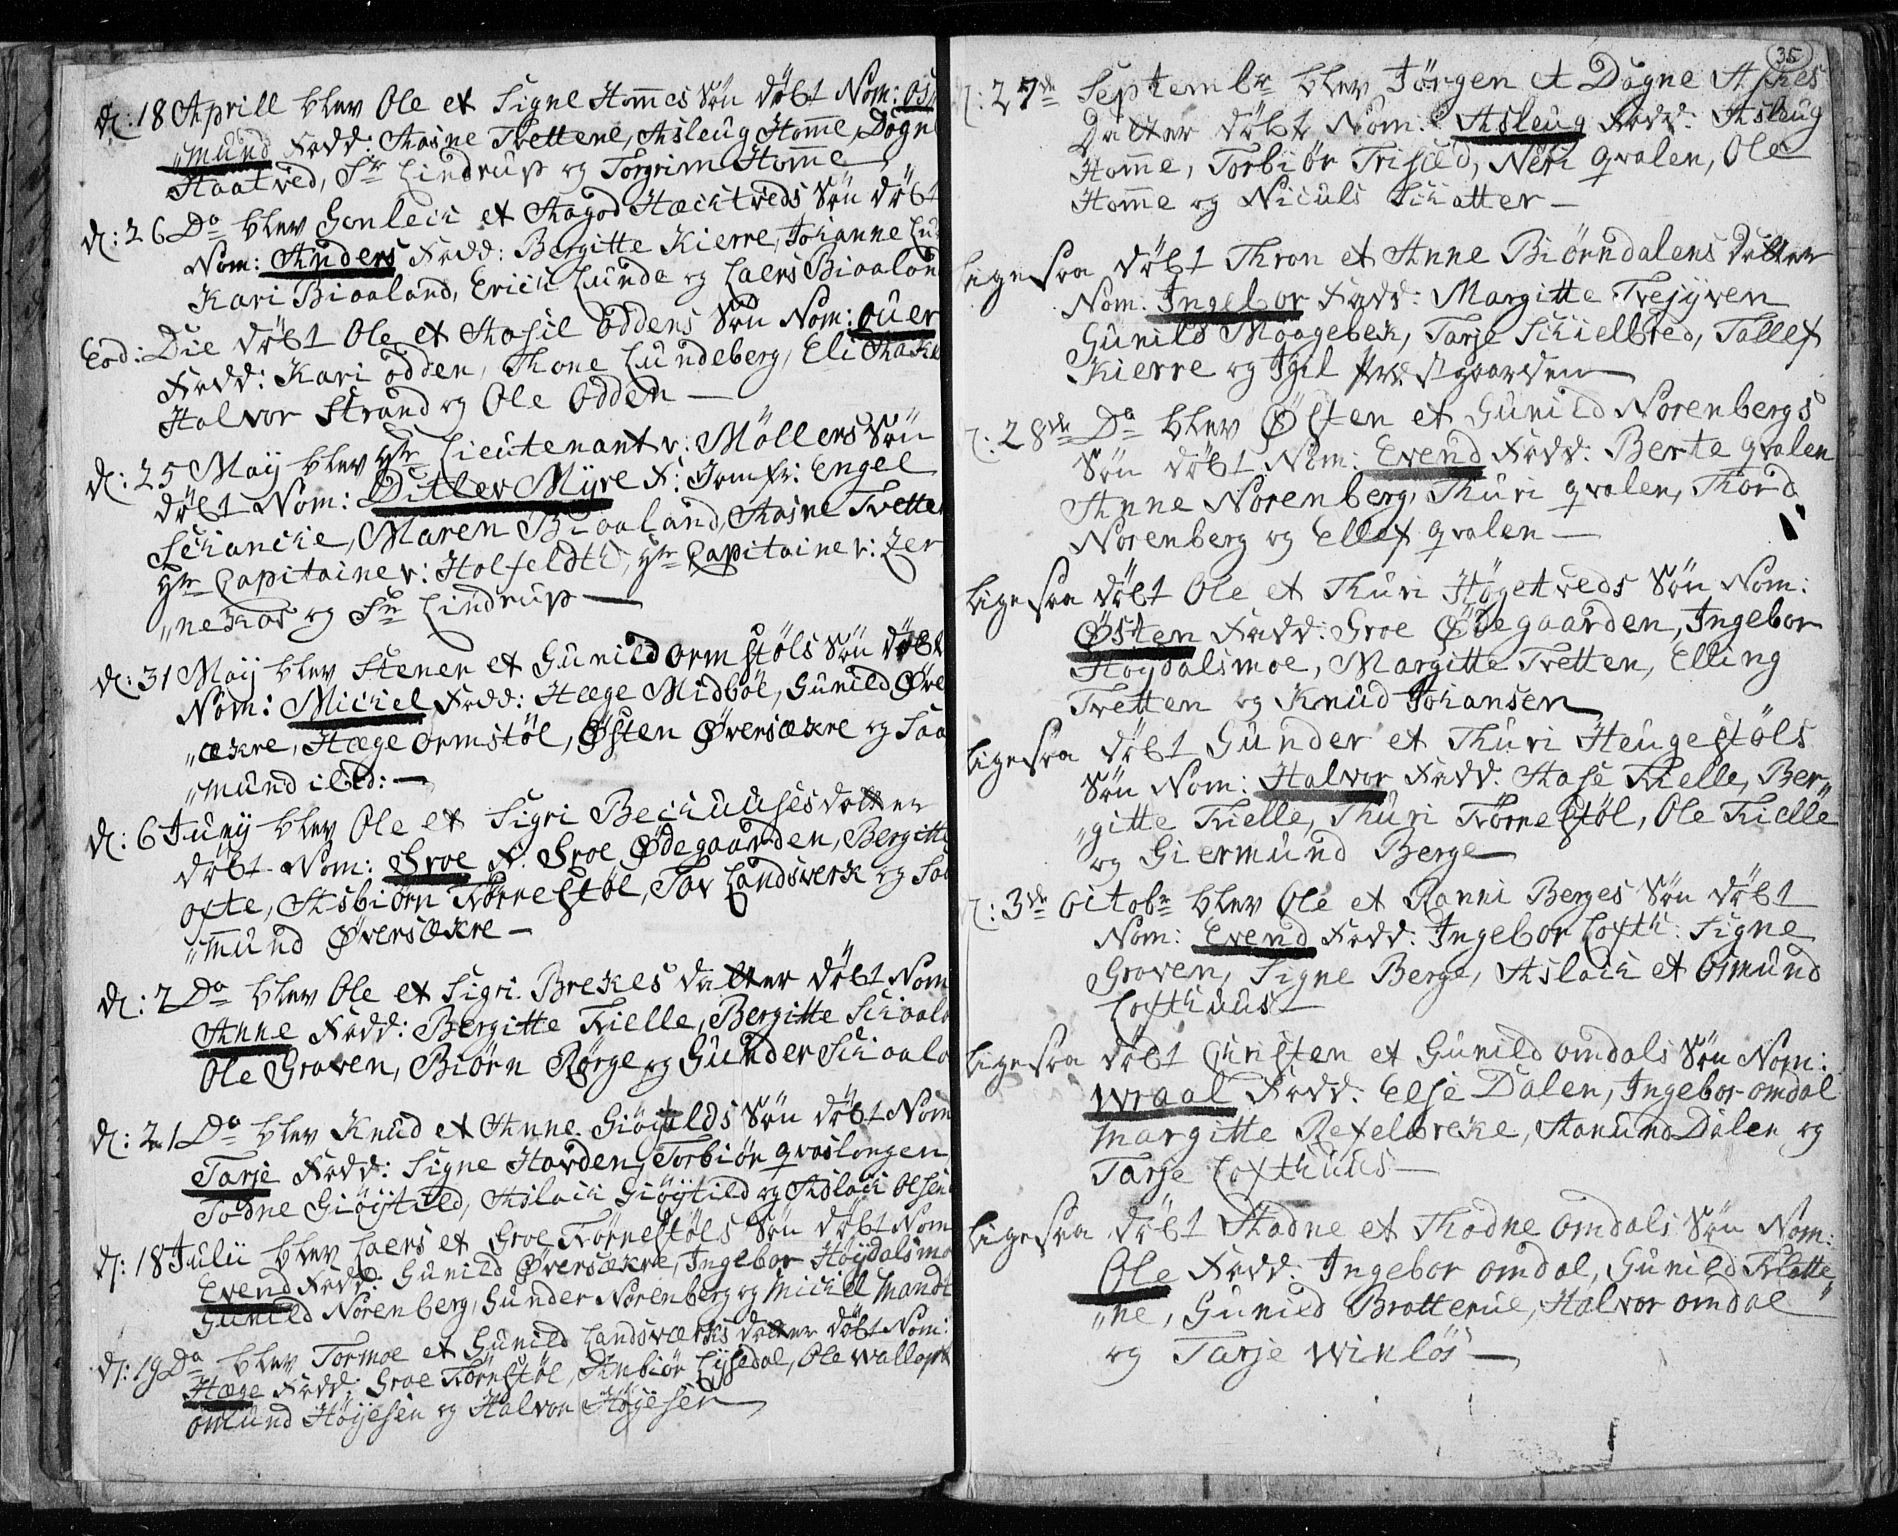 d: 18 Aprill blev Ole et Signe Hommes Søn døbt Nom: Os
„mund Fadd: Aasne Tvettene, Asleug Homme, Dagne
Haatved, Sr Lindrup og Torgrim Homme
d: 26 Do blev Gonleich et Aagod Hæchtveds Søn døbt
Nom: Anders Fadd: Bergitte Kierre, Johanne Lu
Kari Biaaland, Erich Lunde og Laers Biaaland
Eod: Die døbt Ole et Aasil Oddens Søn Nom: Ouer
Fadd: Kari Odden, Thone Lundeberg, Eli
Halvor Strand og Ole Odden —
d: 25 Maij blev Hr Lieutenant v: Möllers Søn
døbt Nom: Ditlev Myre F: Jomfr: Engel
Schancke, Maren Biaaland, Aasne Tvetten
Hr Capitaine v: Holfeldt, Hr Capitaine v: Zer
„nekou og Sr Lindrup —
d: 31 Maij blev Stener et Gunild Ormstöls Søn døbt
Nom: Michel Fadd: Hæge Midböe, Gunild Øve
„ækre, Hæge Ormstöl, Østen Øversækre og Saa
„mund ibid: —
d: 6 Junij blev Ole et Sigri Bechuuses datter
døbt Nom: Groe F. Groe Ødegaarden, Bergitte
ofte, Asbiörn Förrestöl, Tov Landsverk og Saa
„mund Øversækre —
d: 2 Do blev Ole et Sigri Brekkes datter døbt Nom
Anne Fadd: Bergitte Fielle, Bergitte Schaal
Ole Graven, Biörn Rørge og Gunder Schaal
d: 21 Do blev Knud et Anne Giöytilds Søn døbt Nom
Tarje Fadd: Signe Havden, Torbiör qvaslongen
Todne Giöytild, Aslach Giöytild og Aslach Olsen
d: 18 Julii blev Laers et Groe Förrestöls Søn døbt Nom
Evend Fadd: Gunild Øversækre, Ingebor Høydalsmo
Gunild Norenberg, Gunder Norenberg og Michel Mandt
d: 19 Do blev Tormoe et Gunild Landsværks datter døbt Nom:
Hæge Fadd: Groe Förrestöl, Anbiör Lysedal, Ole
Omund Höyesen og Halvor Höyesen
35
d: 27de Septembr blev Jörgen et Dagne Askes
Datter døbt Nom: Asleug Fadd: Asleug
Homme, Torbiör Trisæd, Neri qvalen, Ole
Homme og Niculs Schatter —
ligesaa døbt Thron et Anne Biörndalens datter
Nom: Ingebor Fadd: Margitte Trejyven
Gunild Maagebek, Tarje Schielbred, Tallef
Kierre og Igil præstgaarden
d: 28de Do blev Østen et Gunild Norenbergs
Søn døbt Nom: Evend Fadd: Berte qvalen
Anne Norenberg, Thuri qvalen, Thord
Norenberg og Ellef qvalen —
ligesaa døbt Ole et Thuri Högetveds Søn Nom:
Østen Fadd: Groe Ødegaarden, Ingebor
Høydalsmoe, Margitte Tvetten, Elling
Tvetten og Knud Johansen
ligesaa døbt Gunder et Thuri Heugestöls
Søn Nom: Halvor Fadd: Aase Fielle, Ber„
„gitte Fielle, Thuri Förrestöl, Ole Fielle
og Giermund Berge
d: 3de Octobr blev Ole et Ranni Berges Søn døbt
Nom: Evend Fadd: Ingebor Lofth: Signe
Graven, Signe Berge, Aslach et Osmund
Lofthuus —
ligesaa døbt Christen et Gunild Omdals Søn Nom:
Wraal Fadd: Else Dalen, Ingebor Omdal
Margitte Refelbreke, Aanund Dalen og
Tarje Lofthuus —
ligesaa døbt Aadne et Thadne Omdals Søn Nom:
Ole Fadd: Ingebor Omdal, Gunild Flatte„
„ne, Gunild Bratterue, Halvor Omdal
og Tarje Winlös —